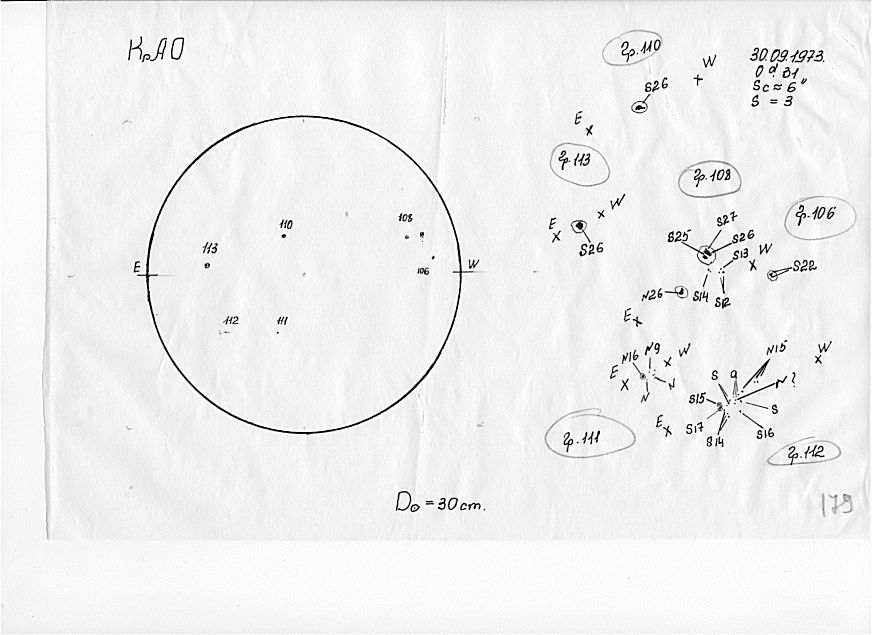 КрАО
30.09.1973.
0ᵈ.31
Sc ≈ 6"
S = 3
гр.110
W
S26
E
гр.113
W
E
S26
гр.108
S27
S25
S26
S13
W
N26
S14
S12
E
гр.106
S22
113
110
108
106
E
W
112
111
N16
N9
W
E
N
N
гр.111
N15
W
S
q
N?
S15
S
S17
S14
S16
E
гр.112
D⊙ = 30cm.
179